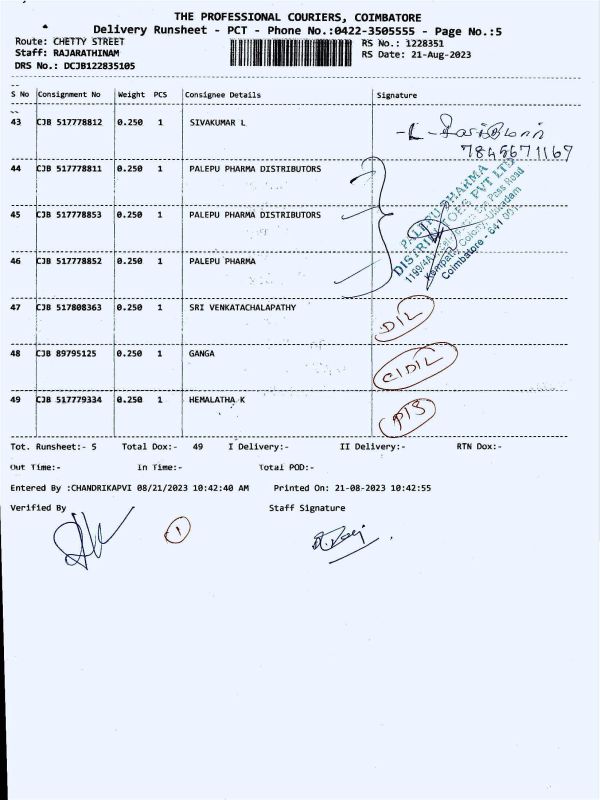 THE PROFESSIONAL COURIERS, COIMBATORE
Delivery Runsheet - PCT - Phone No.:0422-3505555 - Page No.:5
Route: CHETTY STREET
RS No.: 1228351
Staff: RAJARATHINAM
RS Date: 21-Aug-2023
DRS No.: DCJB122835105
S No Consignment No Weight PCS Consignee Details Signature
43 CJB 517778812 0.250 1 SIVAKUMAR L
7845671167
44 CJB 517778811 0.250 1 PALEPU PHARMA DISTRIBUTORS
45 CJB 517778853 0.250 1 PALEPU PHARMA DISTRIBUTORS
46 CJB 517778852 0.250 1 PALEPU PHARMA
PALEPU PHARMA
DISTRIBUTORS PVT LTD
Coimbatore - 641 001
47 CJB 517808363 0.250 1 SRI VENKATACHALAPATHY
DIL
48 CJB 89795125 0.250 1 GANGA
CIDIL
49 CJB 517779334 0.250 1 HEMALATHA K
Tot. Runsheet:- 5 Total Dox:- 49 I Delivery:- II Delivery:- RTN Dox:-
Out Time:- In Time:- Total POD:-
Entered By :CHANDRIKAPVI 08/21/2023 10:42:40 AM Printed On: 21-08-2023 10:42:55
Verified By Staff Signature
1